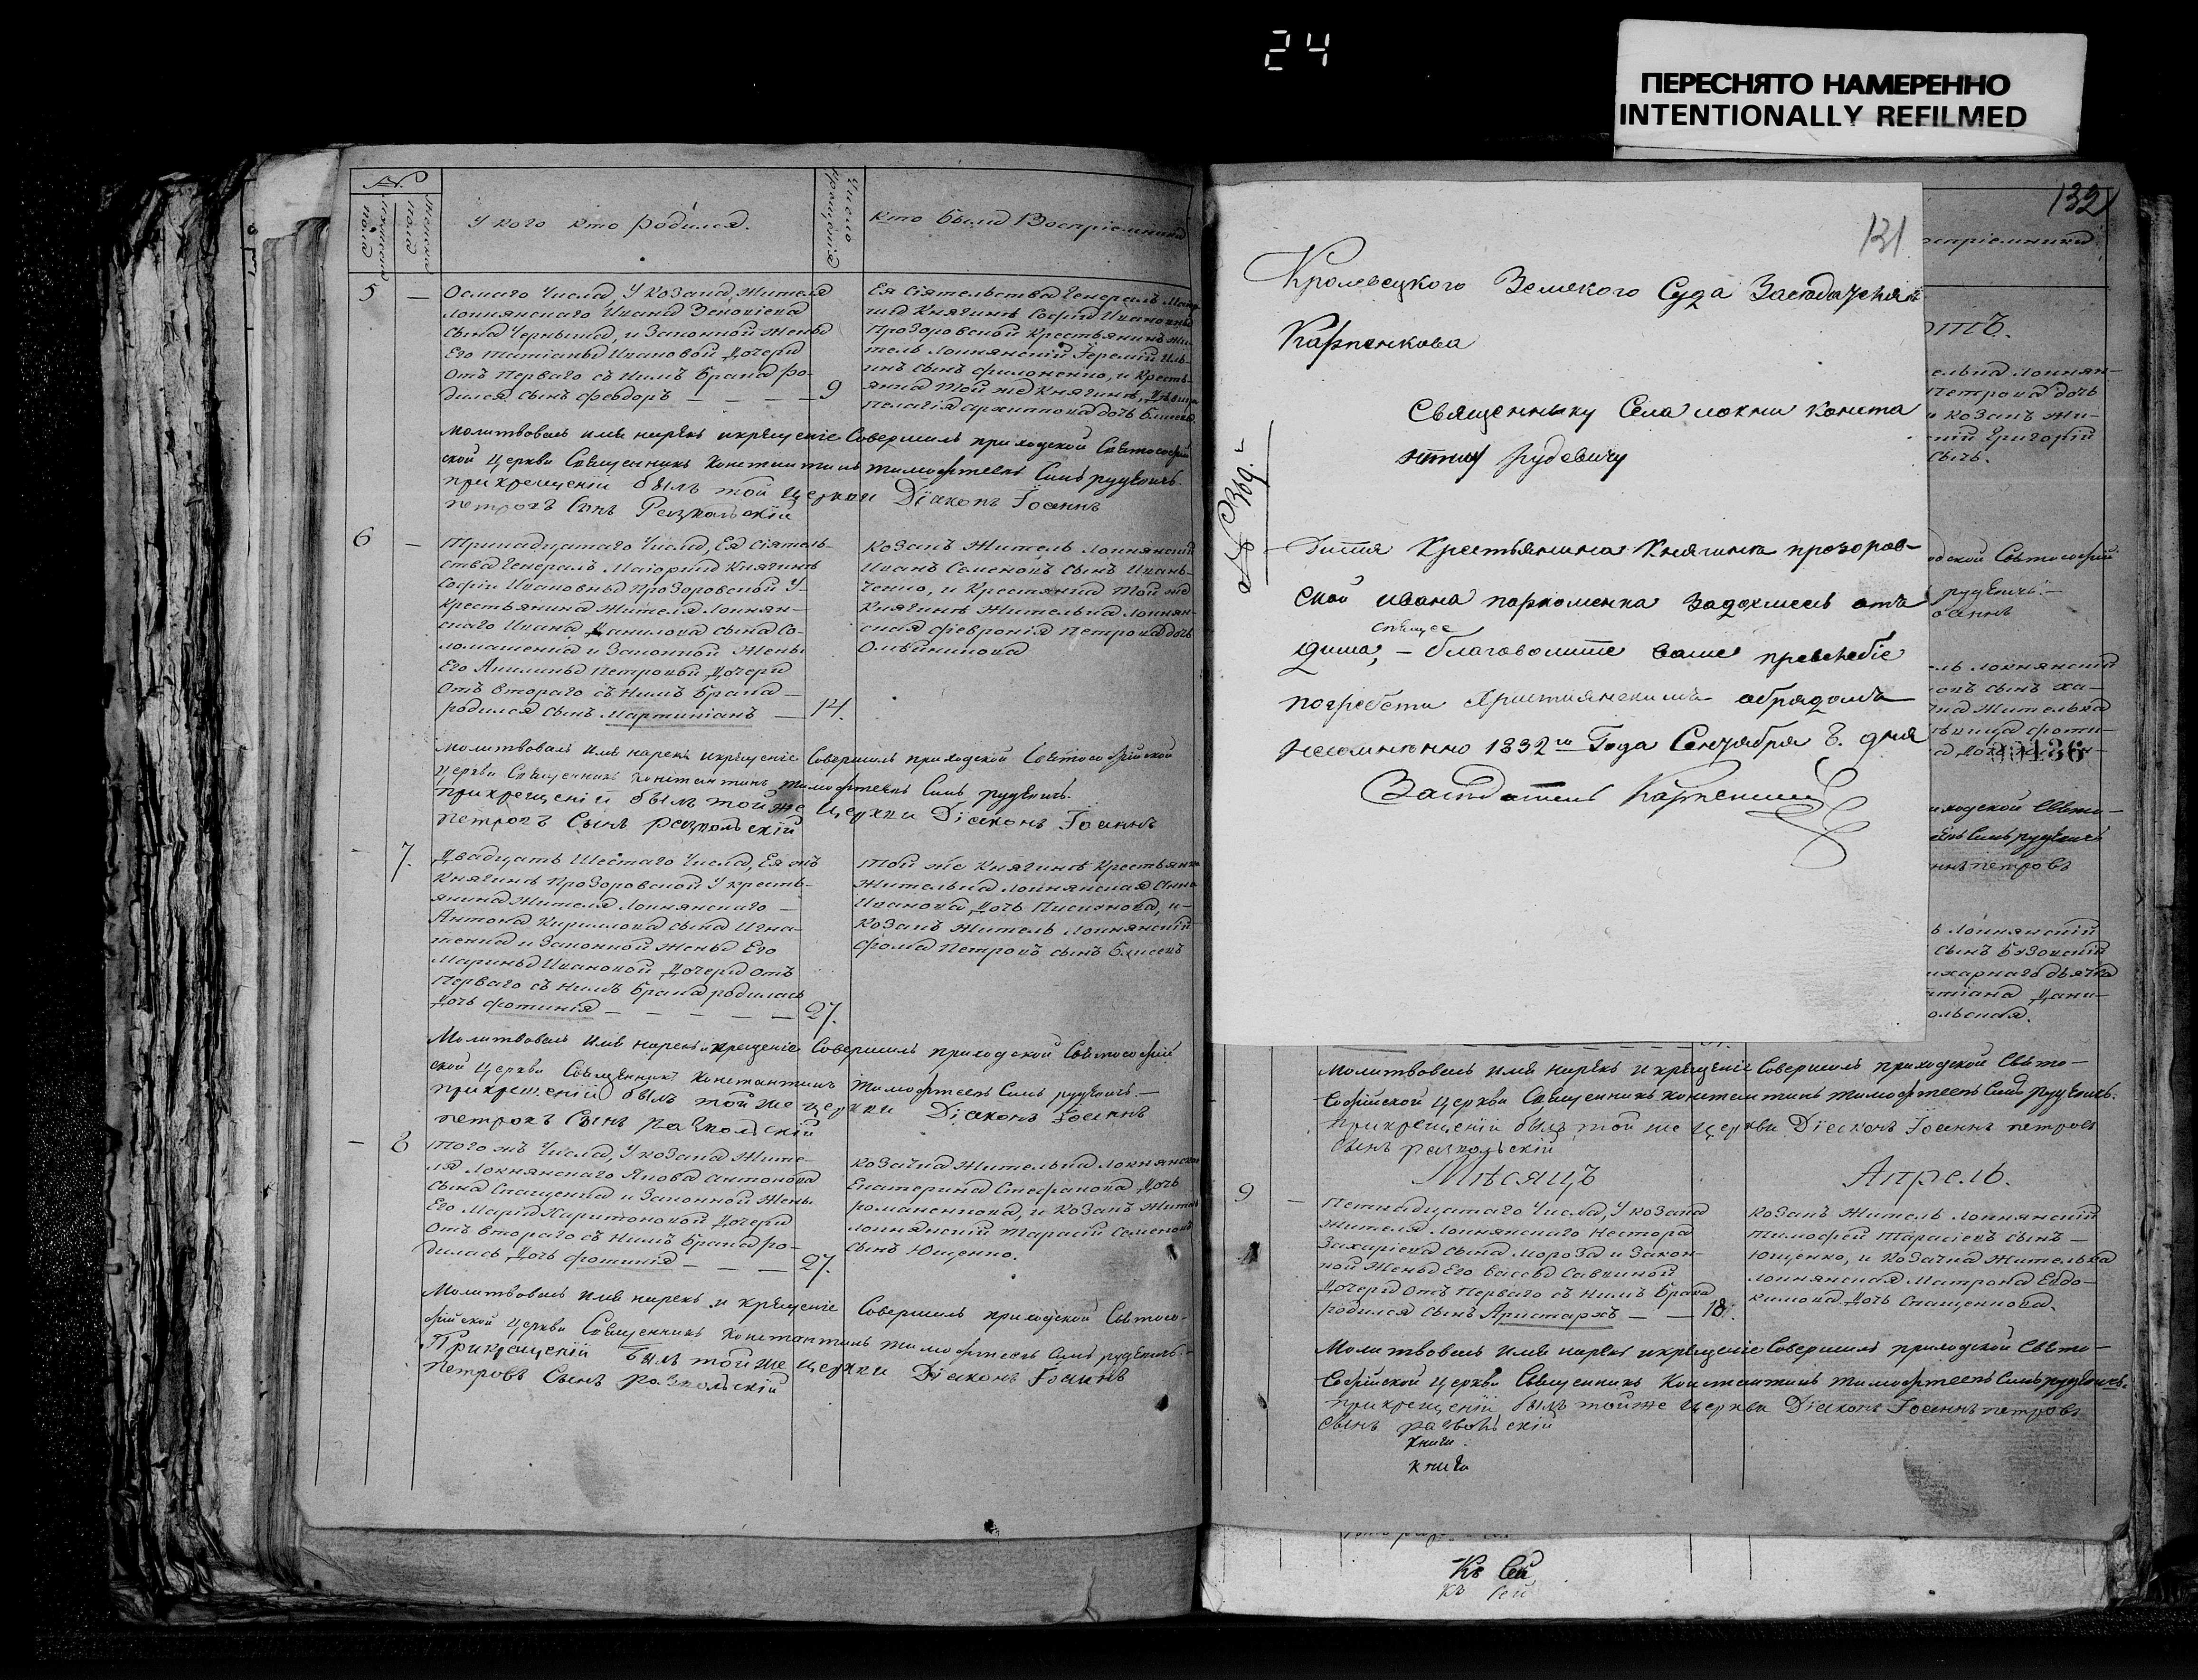 24
ПЕРЕСНЯТО НАМЕРЕННО
INTENTIONALLY REFILMED
№
мужеска пола
женска пола
У кого кто родился.
Число крещения
кто были Воспріемники
5 —
Осмаго Числа, У козака Жителя
Локнянскаго Ивана Зеновіева
сына Черныша, и Законной Жены
Его Татіаны Ивановой Дочери
Отъ Перваго съ Нимъ Брака ро-
дился сынъ Феодоръ — — — — 9
Ея Сіятельства Генералъ Маіор-
ши Княгинѣ Софіи Ивановны
Прозоровской Крестьянинъ Жи-
тель Локнянскій Іеремій Иль-
инъ сынъ Филоненко, и Кресть-
янка Той же Княгинѣ, Дѣвица
Пелагія Архипова дочь
Молитвовалъ имя нарекъ и крещеніе Совершилъ приходской Свѣтософій
ской Церкви Священникъ Константинъ Тимофѣевъ Сынъ рудкевичъ.
при крещеніи былъ той Церкви Діаконъ Іоаннъ
петровъ Сынъ
6 —
Тринадцатаго Числа, Ея Сіятель-
ства Генералъ Маіорши Княгинѣ
Софіи Ивановны Прозоровской У-
Крестьянина Жителя Локнян-
скаго Ивана Данилова сына Со-
ломашенка и Законной Жены
Его Акилины Петровой Дочери
Отъ Втораго съ Нимъ Брака —
родился сынъ Мартиніанъ — 14.
Козакъ Житель Локнянскій
Иванъ Семеновъ сынъ Ивань-
ченко, и Крестянка Той же
Княгинѣ Жителька Локнян-
ская Февронія Петрова дочь
Олейникова
Молитвовалъ имя нарекъ и крещеніе Совершилъ приходской Свѣтософійской
Церкви Священникъ Константинъ Тимофѣевъ Сынъ рудкевичъ.
при крещеніи былъ той же Церкви Діаконъ Іоаннъ
петровъ Сынъ
— 7.
Двадцать Шестаго Числа, Ея жъ
Княгинѣ Прозоровской У кресть-
янина Жителя Локнянскаго —
Антона Кирилова сына Игна-
тенка и Законной Жены Его
Марины Ивановой Дочери отъ
Перваго съ Нимъ Брака родилась
Дочь Фотинія — — — — — 27.
Той же Княгинѣ Крестьянка
Жителька Локнянская Анна
Иванова Дочь Писикова, и-
Козакъ Житель Локнянскій
Фома Петровъ сынъ
Молитвовалъ имя нарекъ и крещеніе Совершилъ приходской Свѣтософій
ской Церкви Священникъ Константинъ Тимофѣевъ Сынъ рудкевичъ.—
при крещеніи былъ той же церкви Діаконъ Іоаннъ
петровъ Сынъ
— 8
Того жъ Числа, У козака Жите-
ля Локнянскаго Якова Антонова
сына Спащенка и Законной Жены
Его Маріи Харитоновой Дочери
Отъ Втораго съ Нимъ Брака ро-
дилась Дочь Фотинія — — — 27.
козачка Жителька Локнянская
Екатерина Стефанова Дочь
романенкова, и Козакъ Житель
Локнянскій Тарасій Семеновъ
сынъ Ющенко.
Молитвовалъ имя нарекъ и крещеніе Совершилъ приходской Свѣтосо-
фійской Церкви Священникъ Константинъ Тимофѣевъ Сынъ рудкевичъ.
При крещеніи былъ той же церкви Діаконъ Іоаннъ
петровъ Сынъ
132
131
Кролевецкого Земского Суда Заседателя
Карпенкова
Священнику Села локни Конста
нтину Рудевичу
Дитя Крестьянина Княгинѣ прозоров-
ской ивана пархоменка задохлись отъ
дима, — благоволите ваше
погребсти Християнскимъ обрядомъ
несомненно 1832го Года Сентября 8. дня
Заседатель Карпенков
оспріемники
ельна локнян-
Петрова дочь
и козакъ жи-
ній Григорій
сынъ.
одской Свѣтософій
рудкевичъ.—
ель локнянскій
00136
иходской Свѣто-
ннъ петровъ
ь локнянскій
сынъ
атіана Дани-
Молитвовалъ имя нарекъ и крещеніе Совершилъ приходской Свѣто-
Софійской Церкви Священникъ Константинъ Тимофѣевъ Сынъ Рудкевичъ.
При крещеніи былъ той же Церкви Діаконъ Іоаннъ петровъ
сынъ
Мѣсяцъ Апрель.
9 —
Петнадцатаго Числа, У козака
Жителя Локнянскаго Нестора
Захаріева сына Мороза и Закон-
ной Жены Его Вассы Саввиной
Дочери Отъ Перваго съ Нимъ Брака
родился сынъ Аристархъ — — 18.
Козакъ Житель Локнянскій
Тимофей Тарасіевъ сынъ —
Ющенко, и Козачка Жителька
Локнянская Матрона Евдо-
кимова Дочь Спащенкова.
Молитвовалъ имя нарекъ и крещеніе Совершилъ приходской Свѣто-
Софійской Церкви Священникъ Константинъ Тимофѣевъ Сынъ рудкевичъ.
При крещеніи былъ той же Церкви Діаконъ Іоаннъ петровъ
сынъ
Книги
книга
Къ Сей
Къ Сей